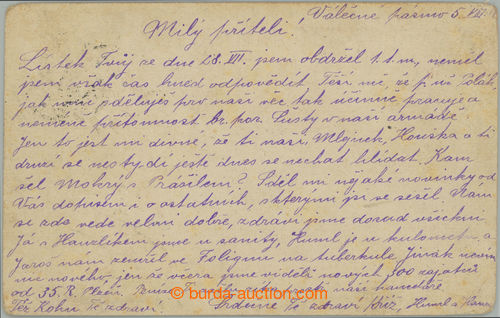 Válečné pásmo 5.VIII.
Milý příteli!
Lístek Tvůj ze dne 28. VII. jsem obdržel 1. t. m., neměl
jsem však čas hned odpovědít. Těší mě, že
jak mi sděluješ pro naši věc tak účinně pracuje a
neméně přítomnost br. por. Šusty v naší armádě.
Jen to jest mi divné, že ti naši Mlejnek, Houška a ti
druzí se nestydí ještě dnes se nechat hlídat. Kam
šel Mokrý s Prášilem? Sděl mi nějaké novinky od
Vás dopisem i o ostatních, s kterými jsi se sešel. Nám
se zde vede velmi dobře, zdrávi jsme dosud všichni.
Já s Hanzlíkem jsme u sanity, Huml je u kulometů a
Jaroš nám zemřel ve Folignu na tuberkule. Jinak
nic nového, jen že včera jsme viděli nových 300 zajatců
od 35. R. Plzeň.
Tě zdraví Srdečně Tě zdraví Huml a
burda-auction.com